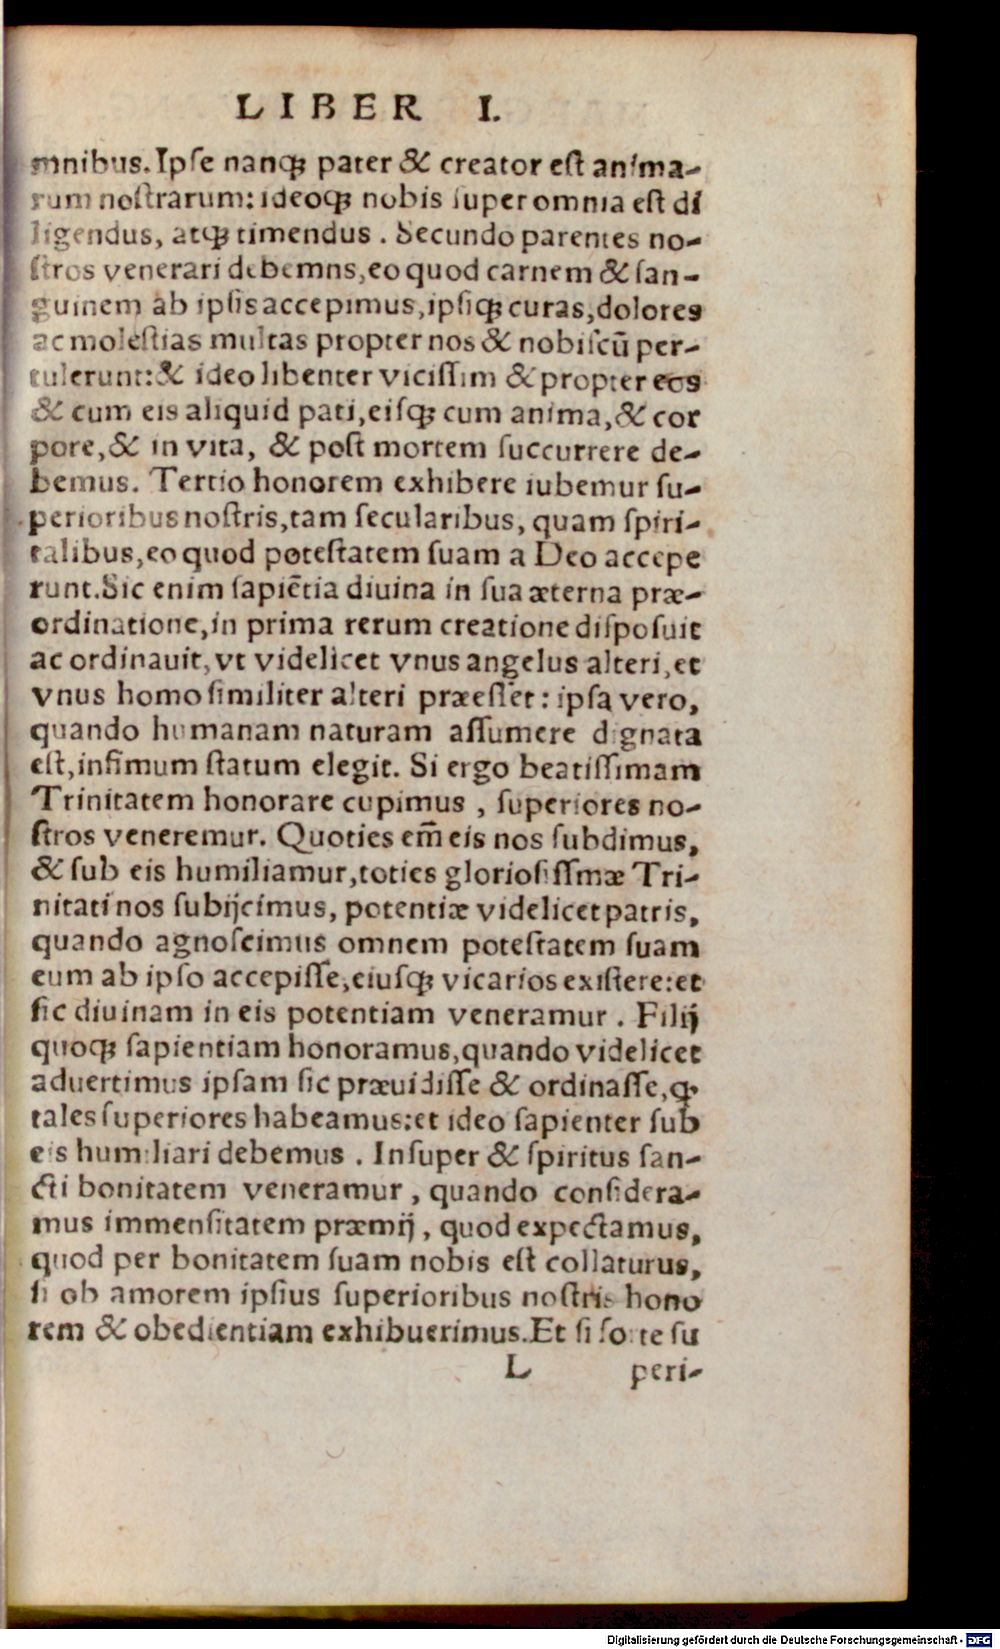 LIBER I.
mnibus. Ipse nanqꝫ pater & creator est anima-
rum nostrarum: ideoqꝫ nobis super omnia est di
ligendus, atqꝫ timendus . Secundo parentes no-
stros venerari debemns, eo quod carnem & san-
guinem ab ipsis accepimus, ipsiqꝫ curas, dolores
ac molestias multas propter nos & nobiscū per-
tulerunt: & ideo libenter vicissim & propter eos
& cum eis aliquid pati, eisqꝫ cum anima, & cor
pore, & in vita, & post mortem succurrere de-
bemus. Tertio honorem exhibere iubemur su-
perioribus nostris, tam secularibus, quam spiri-
talibus, eo quod potestatem suam a Deo accepe
runt. Sic enim sapiētia diuina in sua æterna præ-
ordinatione, in prima rerum creatione disposuit
ac ordinauit, vt videlicet vnus angelus alteri, et
vnus homo similiter alteri præesset: ipsa vero,
quando humanam naturam assumere dignata
est, infimum statum elegit. Si ergo beatissimam
Trinitatem honorare cupimus , superiores no-
stros veneremur. Quoties em̄ eis nos subdimus,
& sub eis humiliamur, toties gloriosissmæ Tri-
nitati nos subijcimus, potentiæ videlicet patris,
quando agnoscimus omnem potestatem suam
eum ab ipso accepisse, eiusqꝫ vicarios existere: et
sic diuinam in eis potentiam veneramur . Filij
quoqꝫ sapientiam honoramus, quando videlicet
aduertimus ipsam sic præuidisse & ordinasse, ꝙ
tales superiores habeamus: et ideo sapienter sub
eis humiliari debemus . Insuper & spiritus san-
cti bonitatem veneramur , quando considera-
mus immensitatem præmij , quod expectamus,
quod per bonitatem suam nobis est collaturus,
si ob amorem ipsius superioribus nostris hono
rem & obedientiam exhibuerimus. Et si forte su
L peri-
Digitalisierung gefördert durch die Deutsche Forschungsgemeinschaft - DFG